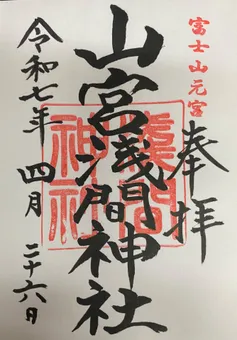 富士山元宮
奉拝
山宮浅間神社
淺間神社
令和七年 四月 二十六日